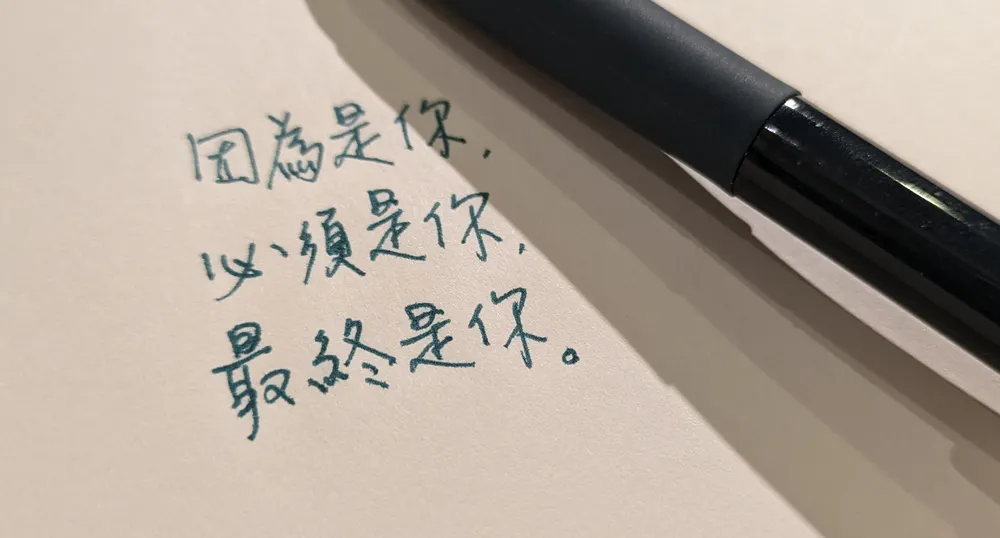 因為是你,
必須是你,
最終是你。